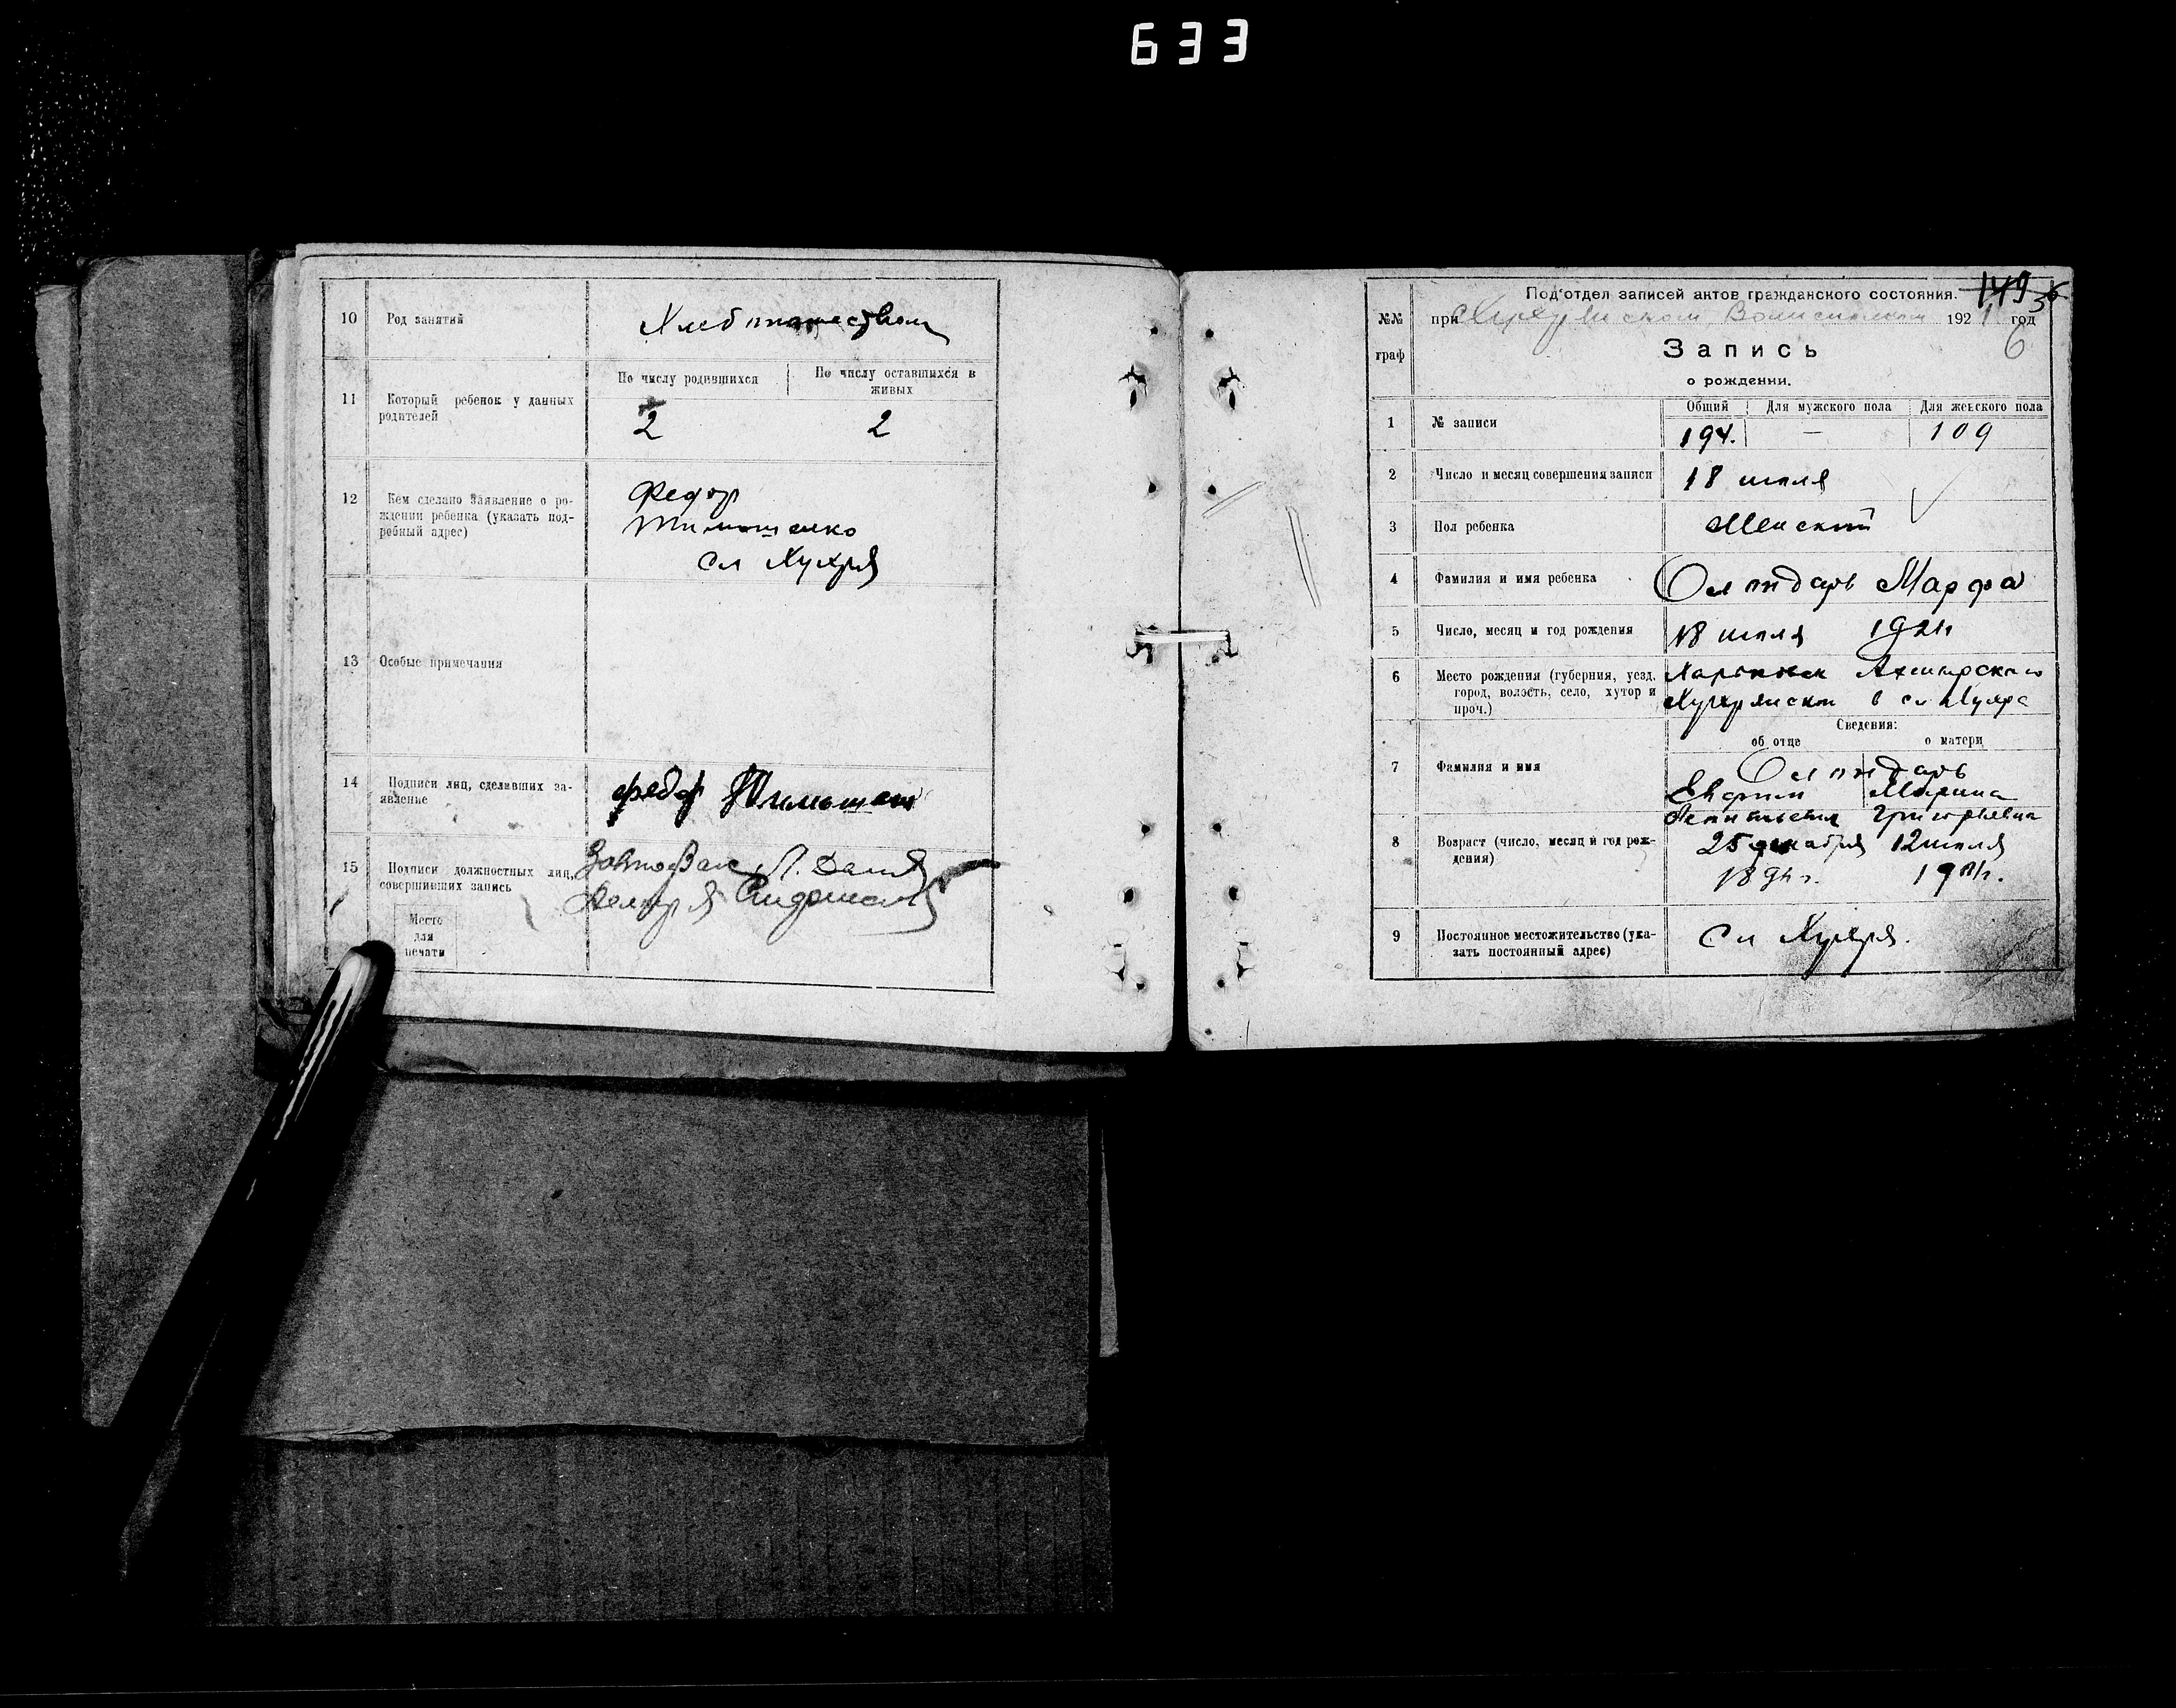 633
10 Род занятий Хлебопашеством
11 Который ребенок у данных
родителей
По числу родившихся
По числу оставшихся в
живых
2 2
12 Кем сделано заявление о ро-
ждении ребенка (указать под-
робный адрес)
Федор
Тимошенко
сл Хухря
13 Особые примечания
14 Подписи лиц, сделавших за-
явление
Федор
15 Подписи должностных лиц,
совершивших запись
Место
для
печати
Под'отдел записей актов гражданского состояния.
149
36
№№
граф
при 1921 год
6
Запись
о рождении.
1 № записи
Общий Для мужского пола Для женского пола
194. — 109
2 Число и месяц совершения записи 18 июля
3 Пол ребенка Женский
4 Фамилия и имя ребенка Марфа
5 Число, месяц и год рождения 18 июля 1921г
6 Место рождения (губерния, уезд,
город, волость, село, хутор и
проч.)
Ахтырского
в сл Хухра
Сведения:
об отце о матери
7 Фамилия и имя
Марина
Григорьевна
8 Возраст (число, месяц и год рож-
дения)
25 декабря 12 июля
9 Постоянное местожительство (ука-
зать постоянный адрес)
Сл Хухря.